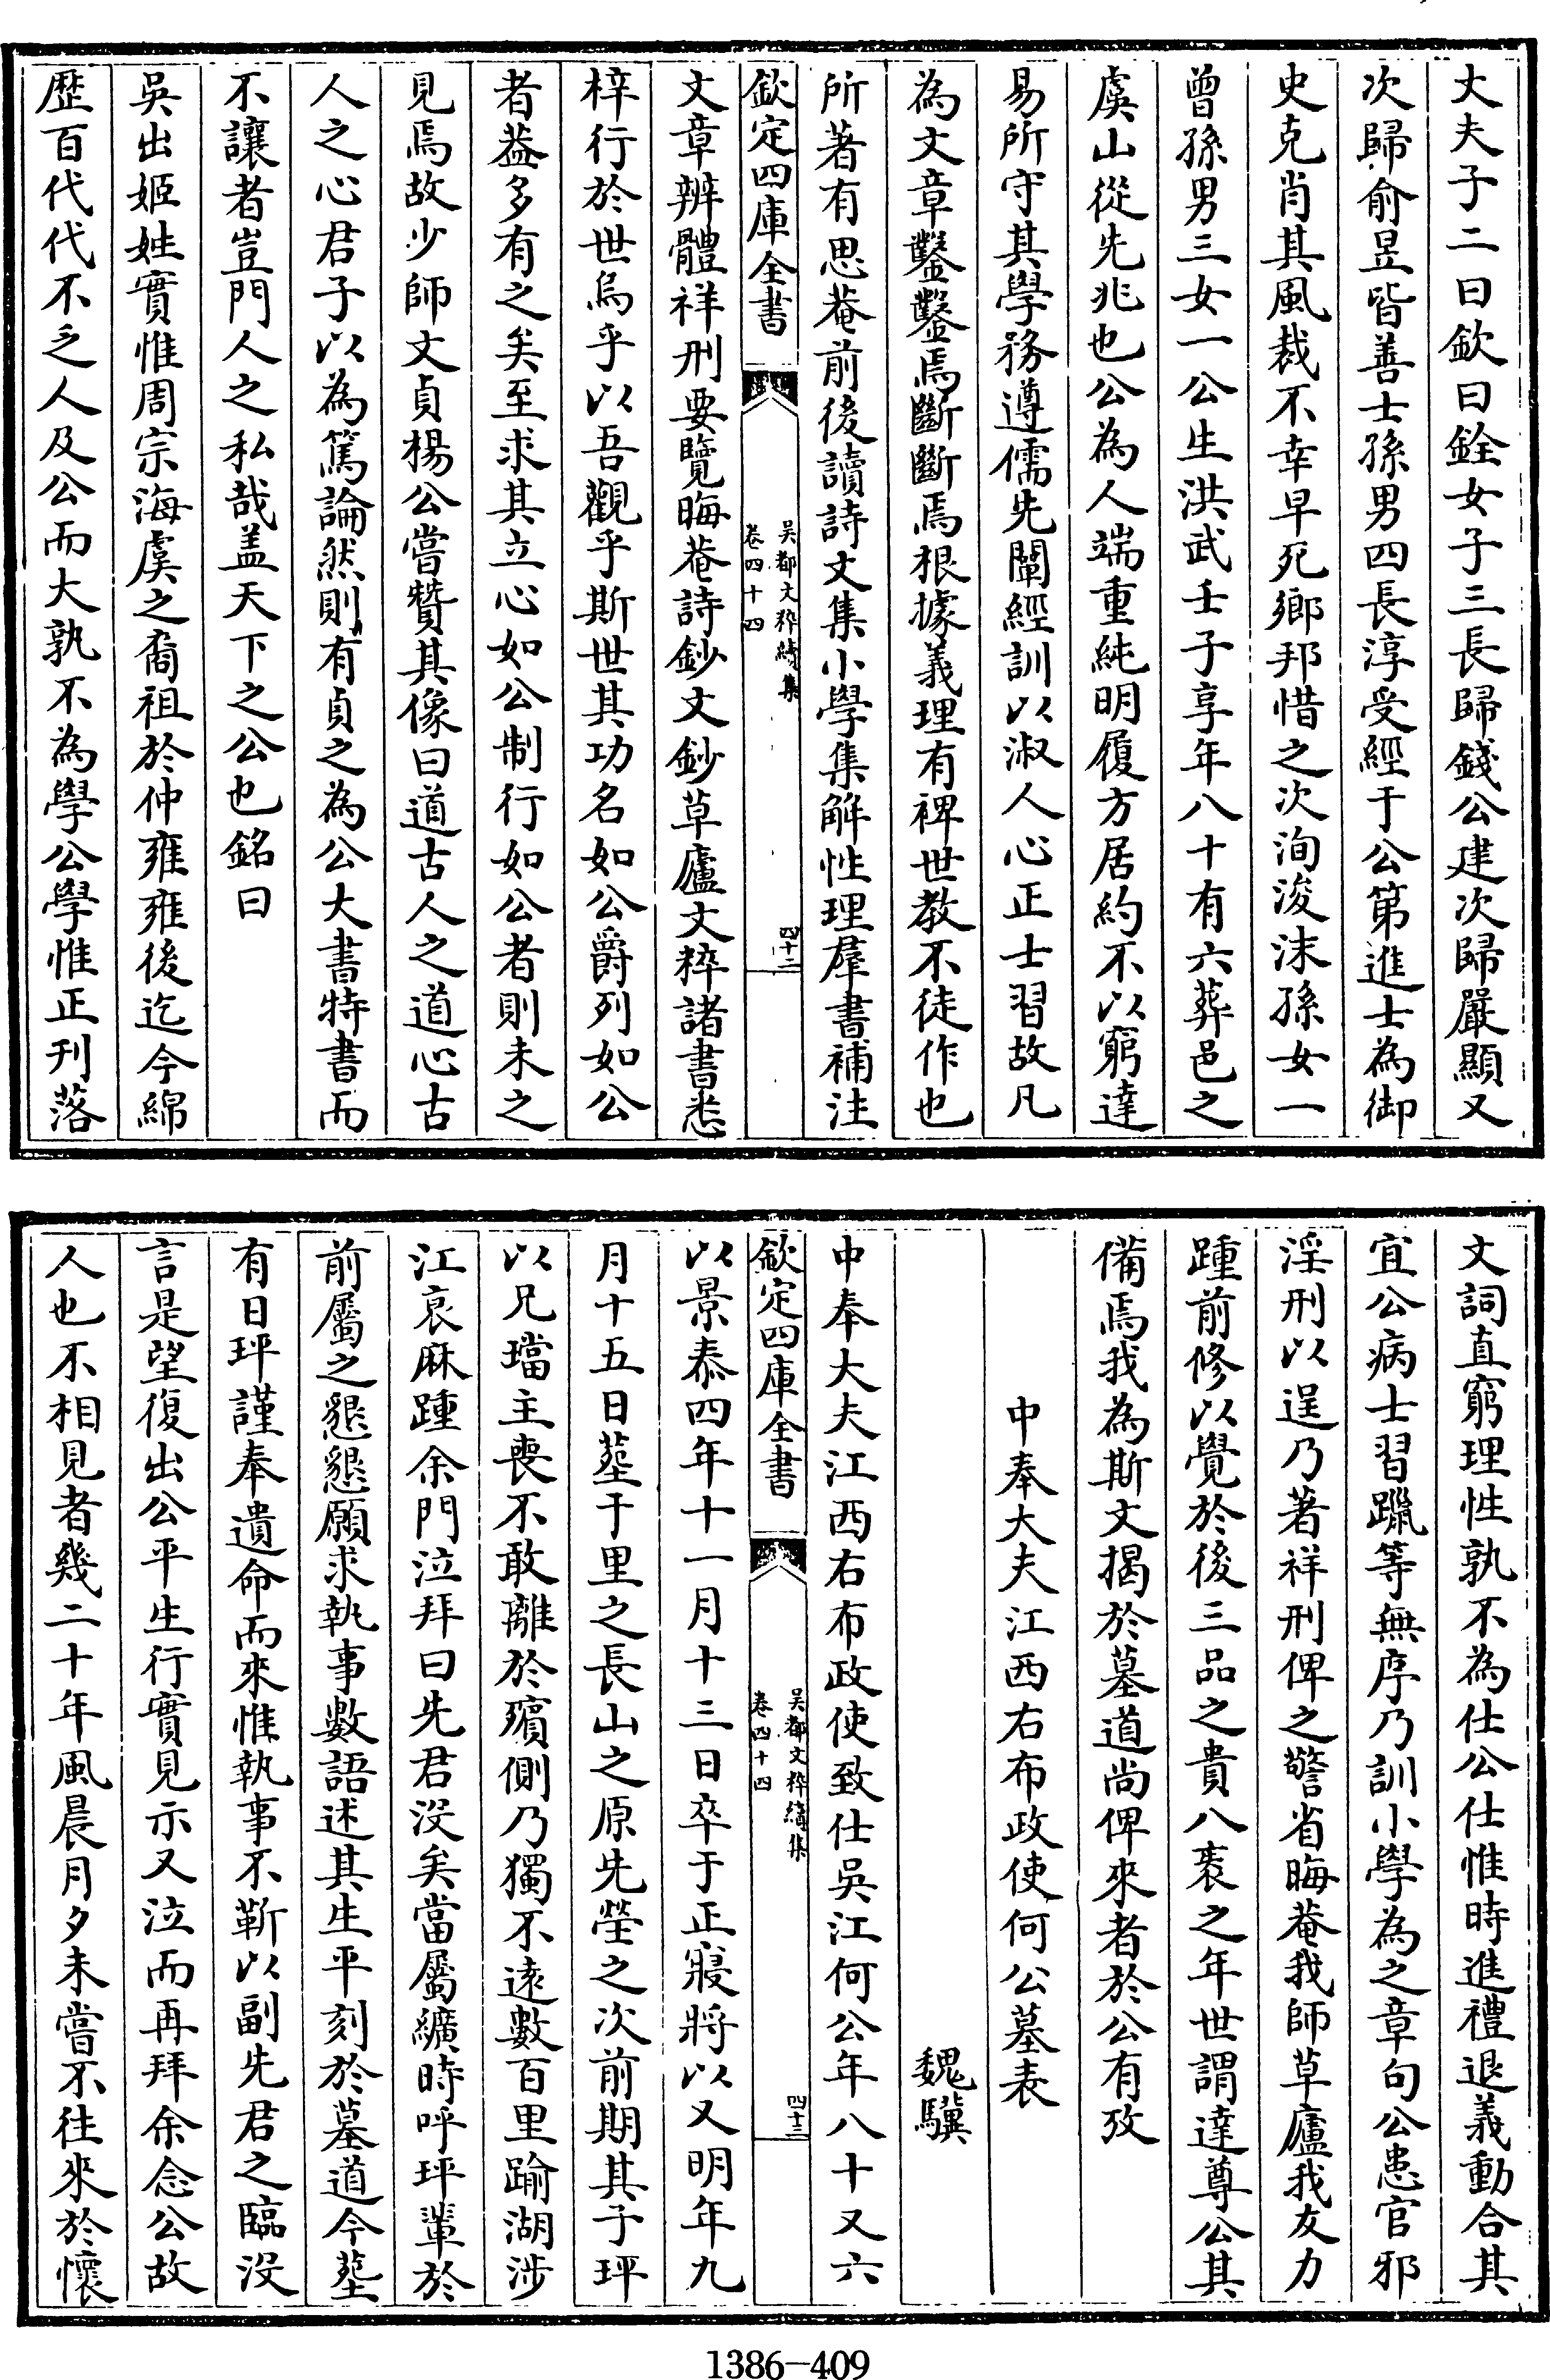 丈夫子二曰欽曰銓女子三長歸錢公建次歸嚴顯又
次歸俞昱皆善士孫男四長淳受經于公第進士為御
史克肖其風裁不幸早死鄉邦惜之次洵浚沫孫女一
曾孫男三女一公生洪武壬子享年八十有六葬邑之
虞山從先兆也公為人端重純明履方居約不以窮達
易所守其學務遵儒先闡經訓以淑人心正士習故凡
為文章鑿鑿焉斷斷焉根據義理有裨世教不徒作也
所著有思菴前後讀詩文集小學集解性理羣書補注
欽定四庫全書
吳都文粹續集
卷四十四
四十二
文章辨體祥刑要覽晦菴詩鈔文鈔草廬文粹諸書悉
梓行於世烏乎以吾觀乎斯世其功名如公爵列如公
者葢多有之矣至求其立心如公制行如公者則未之
見焉故少師文貞楊公嘗贊其像曰道古人之道心古
人之心君子以為篤論然則有貞之為公大書特書而
不讓者豈門人之私哉盖天下之公也銘曰
吳出姬姓實惟周宗海虞之裔祖於仲雍雍後迄今綿
歴百代代不乏人及公而大孰不為學公學惟正刋落
文詞直窮理性孰不為仕公仕惟時進禮退義動合其
宜公病士習躐等無序乃訓小學為之章句公患官邪
淫刑以逞乃著祥刑俾之警省晦菴我師草廬我友力
踵前修以覺於後三品之貴八袠之年世謂達尊公其
備焉我為斯文揭於墓道尚俾來者於公有攷
中奉大夫江西右布政使何公墓表
魏驥
中奉大夫江西右布政使致仕吳江何公年八十又六
欽定四庫全書
吳都文粹續集
卷四十四
四十三
以景泰四年十一月十三日卒于正寢將以又明年九
月十五日塟于里之長山之原先塋之次前期其子玶
以兄璫主喪不敢離於殯側乃獨不逺數百里踰湖涉
江衰麻踵余門泣拜曰先君没矣當屬纊時呼玶輩於
前屬之懇懇願求執事數語述其生平刻於墓道今塟
有日玶謹奉遺命而來惟執事不靳以副先君之臨没
言是望復出公平生行實見示又泣而再拜余念公故
人也不相見者幾二十年風晨月夕未嘗不往來於懷
1386-409